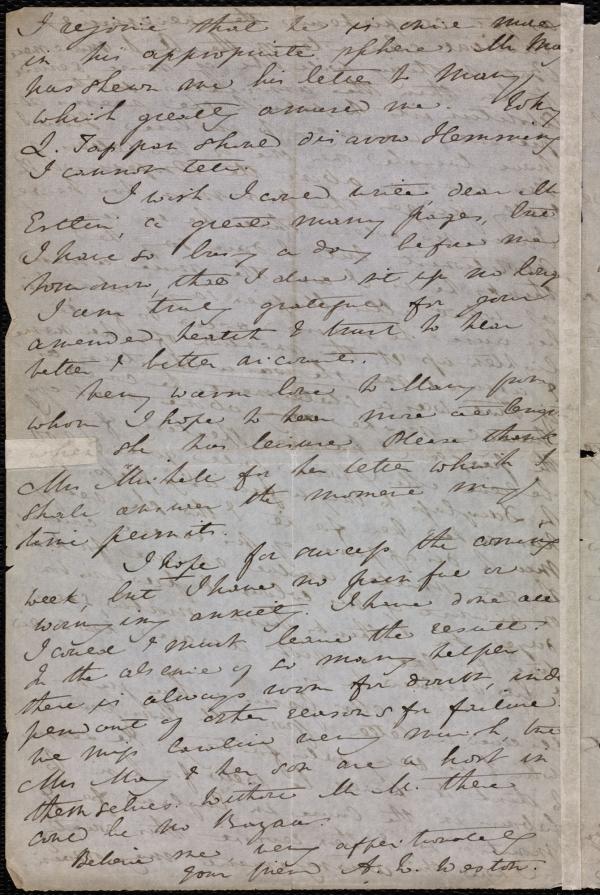 I rejoice that he is once more
in his appropriate sphere. Mr May
has shewn me his letter to Mary,
which greatly amused me. Why
L. Tappan should disavow Hemmenway
I cannot tell.
I wish I could write, dear Mr
Estlin, a great many pages, but
I have so busy a day before me
tomorrow, that I dare sit up no longer
I am truly grateful for your
amended health & trust to hear
better & better accounts.
Very warm love to Mary from
whom I hope to hear more at length
when she has leisure. Please thank
Mrs Michell for her letter which I
shall answer the moment my
time permits.
I hope for success the coming
week, but I have no painful or
worrying anxiety. I have done all
I could & must leave the result.
In the absence of so many helpers
there is always room for doubt, inde
pendant of other reasons for failure
we miss Caroline very much, but
Mrs May & her son are a host in
themselves. Without Mr M. there
could be no Bazaar.
Believe me very affectionately
your friend A. W. Weston.